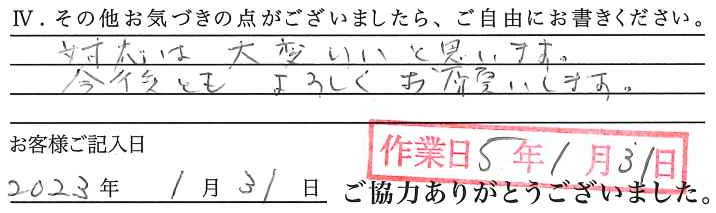 Ⅳ．その他お気づきの点がございましたら、ご自由にお書きください。
対応は大変いいと思います。
今後ともよろしくお願いします。
お客様ご記入日
作業日 5年 1月 31日
2023年 1月 31日
ご協力ありがとうございました。